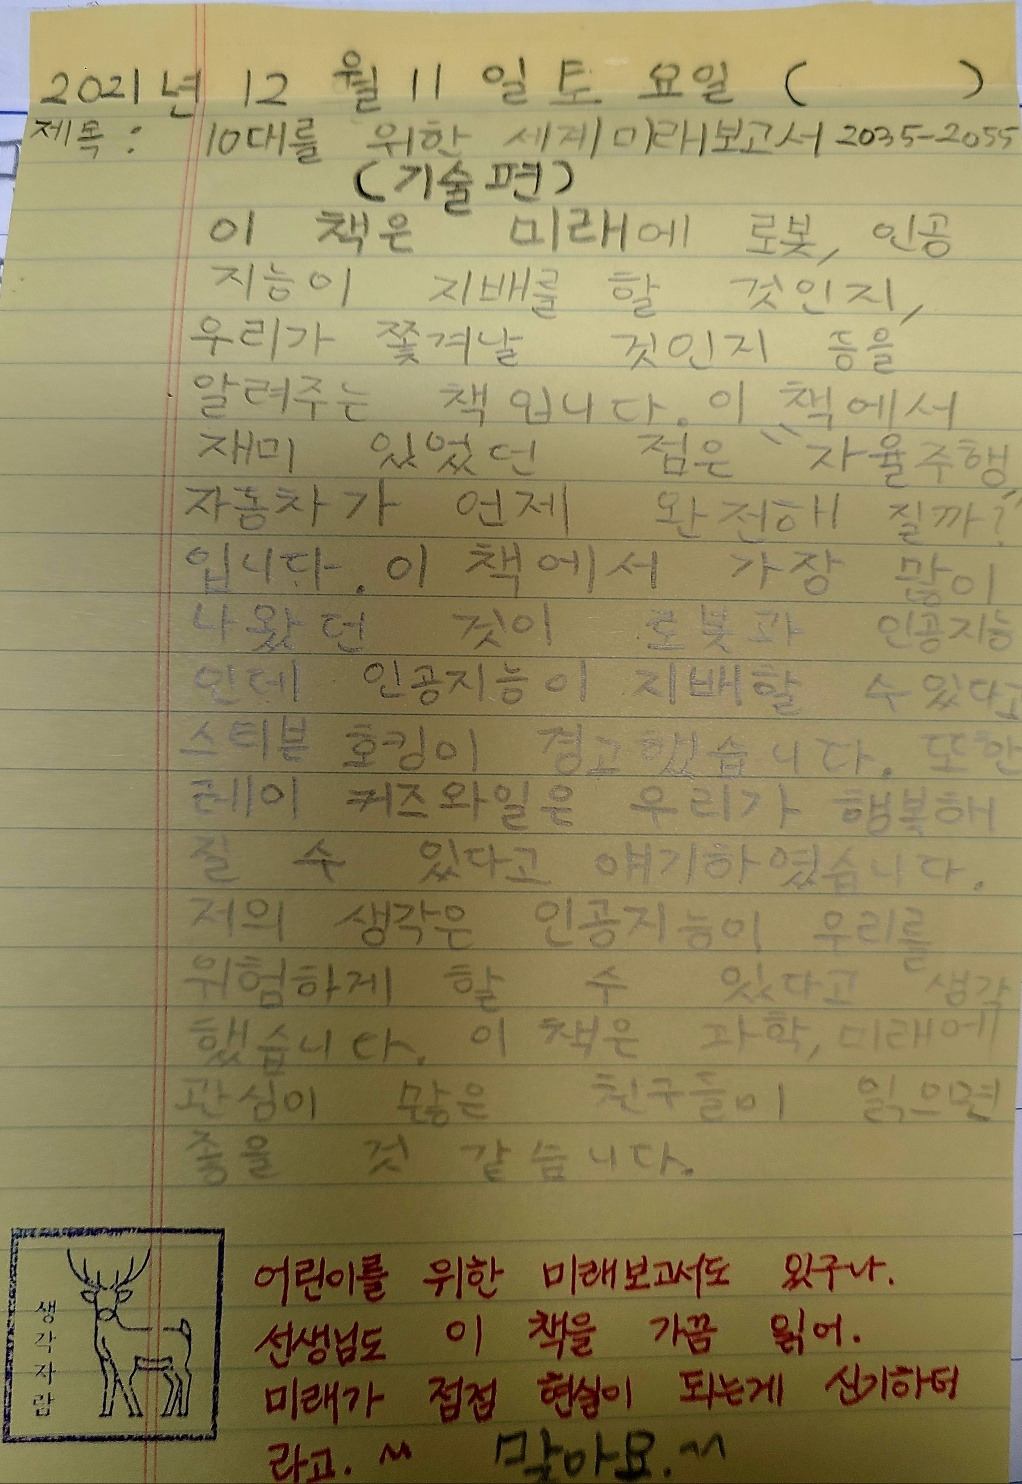 2021년 12 월 11 일 토 요일 ( )
제목: 10대를 위한 세계미래보고서 2035-2055
(기술편)
이 책은 미래에 로봇, 인공
지능이 지배를 할 것인지,
우리가 쫓겨날 것인지 등을
알려주는 책입니다. 이 책에서
재미 있었던 점은 "자율주행
자동차가 언제 완전해 질까?"
입니다. 이 책에서 가장 많이
나왔던 것이 로봇과 인공지능
인데 인공지능이 지배할 수있다고
스티븐 호킹이 경고했습니다. 또한
레이 커즈와일은 우리가 행복해
질 수 있다고 얘기하였습니다.
저의 생각은 인공지능이 우리를
위험하게 할 수 있다고 생각
했습니다. 이 책은 과학, 미래에
관심이 많은 친구들이 읽으면
좋을 것 같습니다.
생각자람
어린이를 위한 미래보고서도 있구나.
선생님도 이 책을 가끔 읽어.
미래가 점점 현실이 되는게 신기하더
라고. ^^ 맞아요. ^^